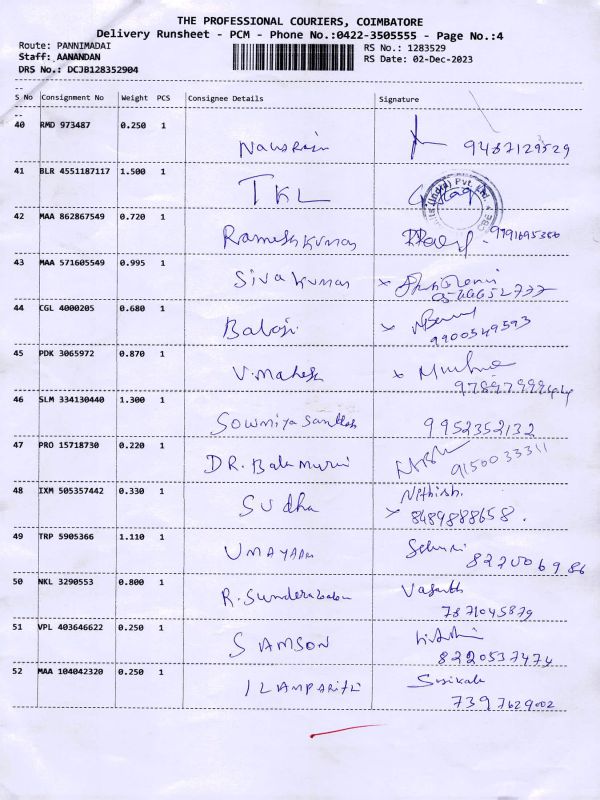 THE PROFESSIONAL COURIERS, COIMBATORE
Delivery Runsheet - PCM - Phone No.:0422-3505555 - Page No.:4
Route: PANNIMADAI RS No.: 1283529
Staff: AANANDAN RS Date: 02-Dec-2023
DRS No.: DCJB128352904
--
S No Consignment No Weight PCS Consignee Details Signature
--
40 RMD 973487 0.250 1
9487129529
41 BLR 4551187117 1.500 1
TKL
Pvt. Ltd.
42 MAA 862867549 0.720 1
Ramesh Kumar
43 MAA 571605549 0.995 1
Siva Kumar
44 CGL 4000205 0.680 1
Balaji 9900549593
45 PDK 3065972 0.870 1
V. Mahesh
46 SLM 334130440 1.300 1
Sowmiya Santhosh 9952352132
47 PRO 15718730 0.220 1
DR. Bala Murui 9150033311
48 IXM 505357442 0.330 1
Sudha Nithish.
8489888658.
49 TRP 5905366 1.110 1
UMAYAAM
50 NKL 3290553 0.800 1
R. Vasanth
7871045879
51 VPL 403646622 0.250 1
SAMSON
8220537474
52 MAA 104042320 0.250 1
Sasikala
7397629002